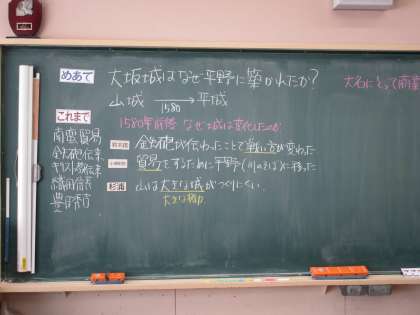 めあて
大坂城はなぜ平野に築かれたか?
山城 → 平城
1580
1580年前後 なぜ城は変化したのか
これまで
南蛮貿易
鉄砲伝来
キリスト教伝来
織田信長
豊臣秀吉
鉄砲が伝わったことで戦い方が変わった
貿易をするために平野(川のそば)に移った
杉浦
山は大きな城がつくりにくい。
大きな権力
大名にとって商業